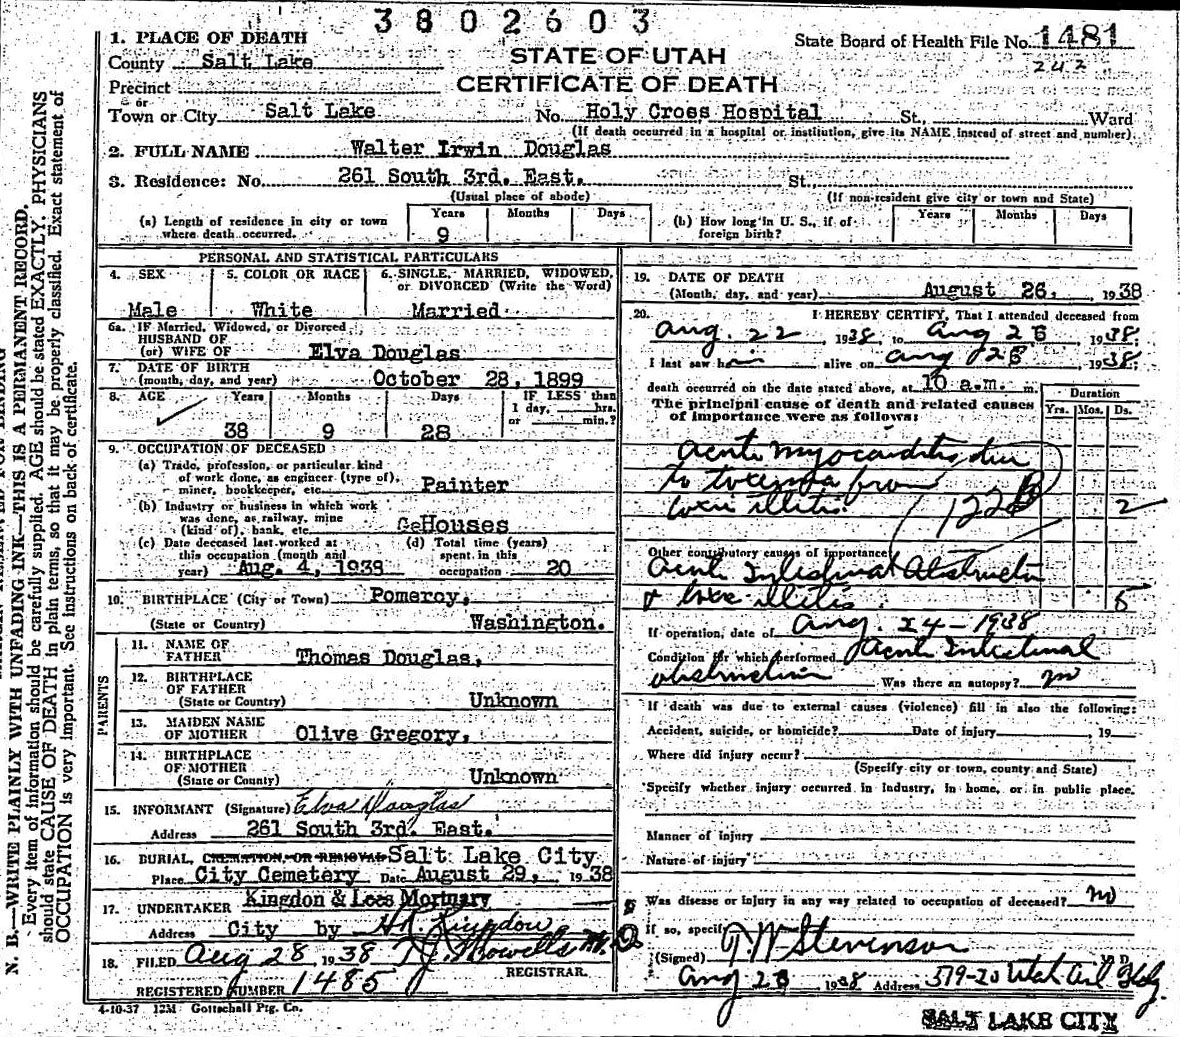 3802603
1. PLACE OF DEATH
STATE OF UTAH
CERTIFICATE OF DEATH
State Board of Health File No. 1481
242
County Salt Lake
Precinct
or
Town or City Salt Lake No. Holy Cross Hospital St., Ward
(If death occurred in a hospital or institution, give its NAME instead of street and number)
2. FULL NAME Walter Irwin Douglas
3. Residence: No. 261 South 3rd. East. St.,
(Usual place of abode) (If non-resident give city or town and State)
(a) Length of residence in city or town where death occurred. Years 9 Months Days
(b) How long in U. S., if of foreign birth? Years Months Days
PERSONAL AND STATISTICAL PARTICULARS
4. SEX Male
5. COLOR OR RACE White
6. SINGLE, MARRIED, WIDOWED, or DIVORCED (Write the Word) Married
6a. IF Married, Widowed, or Divorced
HUSBAND OF
(or) WIFE OF Elva Douglas
7. DATE OF BIRTH
(month, day, and year) October 28, 1899
8. AGE Years 38 Months 9 Days 28 IF LESS than 1 day, hrs. or min.?
9. OCCUPATION OF DECEASED
(a) Trade, profession, or particular kind
of work done, as engineer (type of),
miner, bookkeeper, etc. Painter
(b) Industry or business in which work
was done, as railway, mine
(kind of), bank, etc. Houses
(c) Date deceased last worked at
this occupation (month and
year) Aug. 4, 1938
(d) Total time (years)
spent in this
occupation 20
10. BIRTHPLACE (City or Town) Pomeroy,
(State or Country) Washington.
PARENTS
11. NAME OF
FATHER Thomas Douglas,
12. BIRTHPLACE
OF FATHER
(State or Country) Unknown
13. MAIDEN NAME
OF MOTHER Olive Gregory,
14. BIRTHPLACE
OF MOTHER
(State or County) Unknown
15. INFORMANT (Signature) Elva Douglas
Address 261 South 3rd. East.
16. BURIAL, CREMATION, OR REMOVAL Salt Lake City
Place City Cemetery Date August 29, 1938
17. UNDERTAKER Kingdon & Lees Mortuary
Address City by
18. FILED Aug 28, 1938
REGISTRAR.
REGISTERED NUMBER 1485
4-10-37 12M Gottschall Ptg. Co.
19. DATE OF DEATH
(Month, day, and year) August 26, 1938
20. I HEREBY CERTIFY, That I attended deceased from
Aug. 22 1938 to Aug 26 1938;
I last saw him alive on Aug 26 1938;
death occurred on the date stated above, at 10 a.m. m.
The principal cause of death and related causes
of importance were as follows:
Duration
Yrs. Mos. Ds.
Acute myocarditis, due
to toxemia from
122B 2
Other contributory causes of importance:
Acute Intestinal Obstruction
5
If operation, date of Aug. 24-1938
Condition for which performed Acute Intestinal
obstruction Was there an autopsy? no
If death was due to external causes (violence) fill in also the following:
Accident, suicide, or homicide? Date of injury , 19
Where did injury occur?
(Specify city or town, county and State)
Specify whether injury occurred in industry, in home, or in public place.
Manner of injury
Nature of injury
Was disease or injury in any way related to occupation of deceased? no
If so, specify
(Signed) Stevenson M D
Aug 26 1938 Address 519-20 Utah Bldg.
SALT LAKE CITY
N. B.—WRITE PLAINLY WITH UNFADING INK—THIS IS A PERMANENT RECORD.
Every item of information should be carefully supplied. AGE should be stated EXACTLY. PHYSICIANS
should state CAUSE OF DEATH in plain terms, so that it may be properly classified. Exact statement of
OCCUPATION is very important. See instructions on back of certificate.